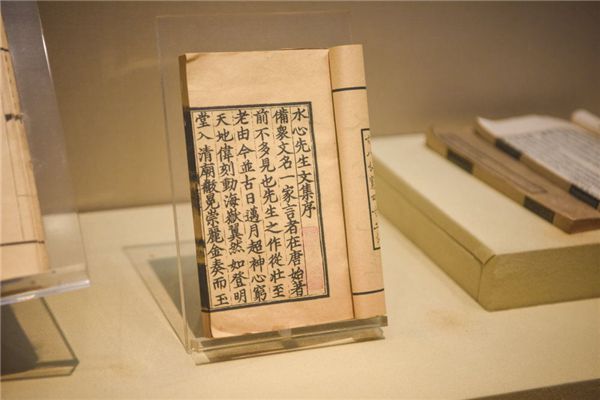 水心先生文集序
備衆文名一家言者在唐始著
前不多見也先生之作從壯至
老由今並古日邁月超神心窮
天地偉刻動海嶽翼然如登明
堂入清廟黻冕崇麗金奏而玉